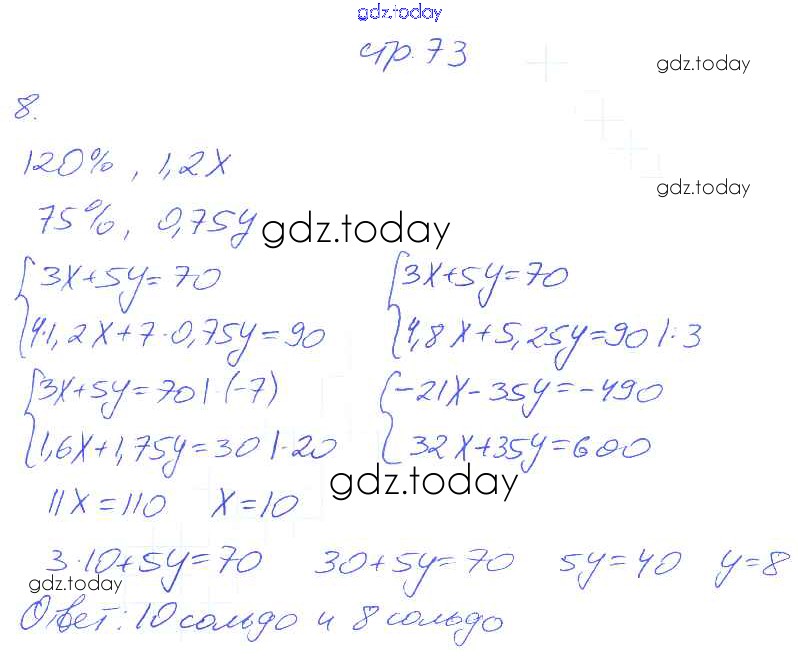 gdz.today
стр. 73
gdz.today
8.
120%, 1,2x
gdz.today
75%, 0,75y
gdz.today
{3x+5y=70 {3x+5y=70
4·1,2x+7·0,75y=90 4,8x+5,25y=90 |:3
{3x+5y=70 |·(-7) {-21x-35y=-490
1,6x+1,75y=30 |·20 32x+35y=600
gdz.today
11x=110 x=10
3·10+5y=70 30+5y=70 5y=40 y=8
gdz.today
Ответ: 10 сольдо и 8 сольдо